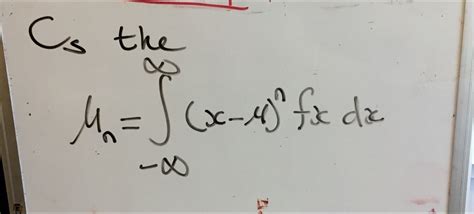 Cs the
μₙ = ∫_{-∞}^{∞} (x-μ)ⁿ fx dx